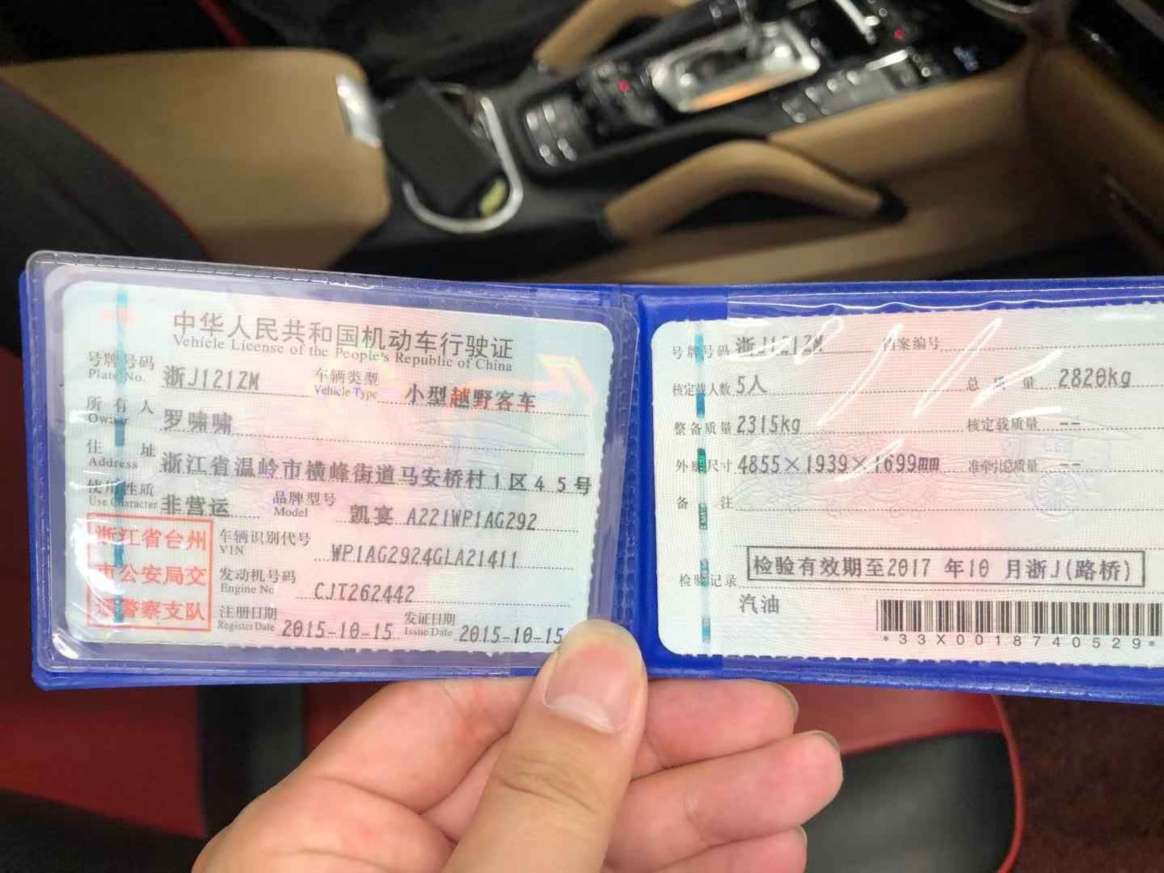 中华人民共和国机动车行驶证
Vehicle License of the People's Republic of China
号牌号码 浙J121ZM 车辆类型 小型越野客车
Plate No. Vehicle Type
所有人 罗啸啸
Owner
住址 浙江省温岭市横峰街道马安桥村1区45号
Address
使用性质 非营运 品牌型号 凯宴 A221WP1AG292
Use Character Model
浙江省台州
市公安局交
通警察支队
车辆识别代号 WP1AG2924GLA21411
VIN
发动机号码 CJT262442
Engine No
注册日期 2015-10-15 发证日期 2015-10-15
Register Date Issue Date
号牌号码 浙J121ZM 档案编号
核定载人数 5人 总质量 2820kg
整备质量 2315kg 核定载质量 --
外廓尺寸 4855×1939×1699mm 准牵引总质量 --
备注
检验记录 检验有效期至2017 年10 月浙J(路桥)
汽油
*33X0018740529*